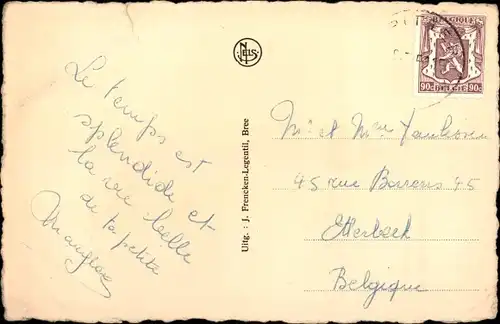 Le temps est
splendide et
la vie belle
de ta petite
NELS
Uitg. : J. Frencken-Legentil, Bree
BELGIQUE
90c BELGIE 90c
M. et Mme
45 rue 45
Etterbeek
Belgique